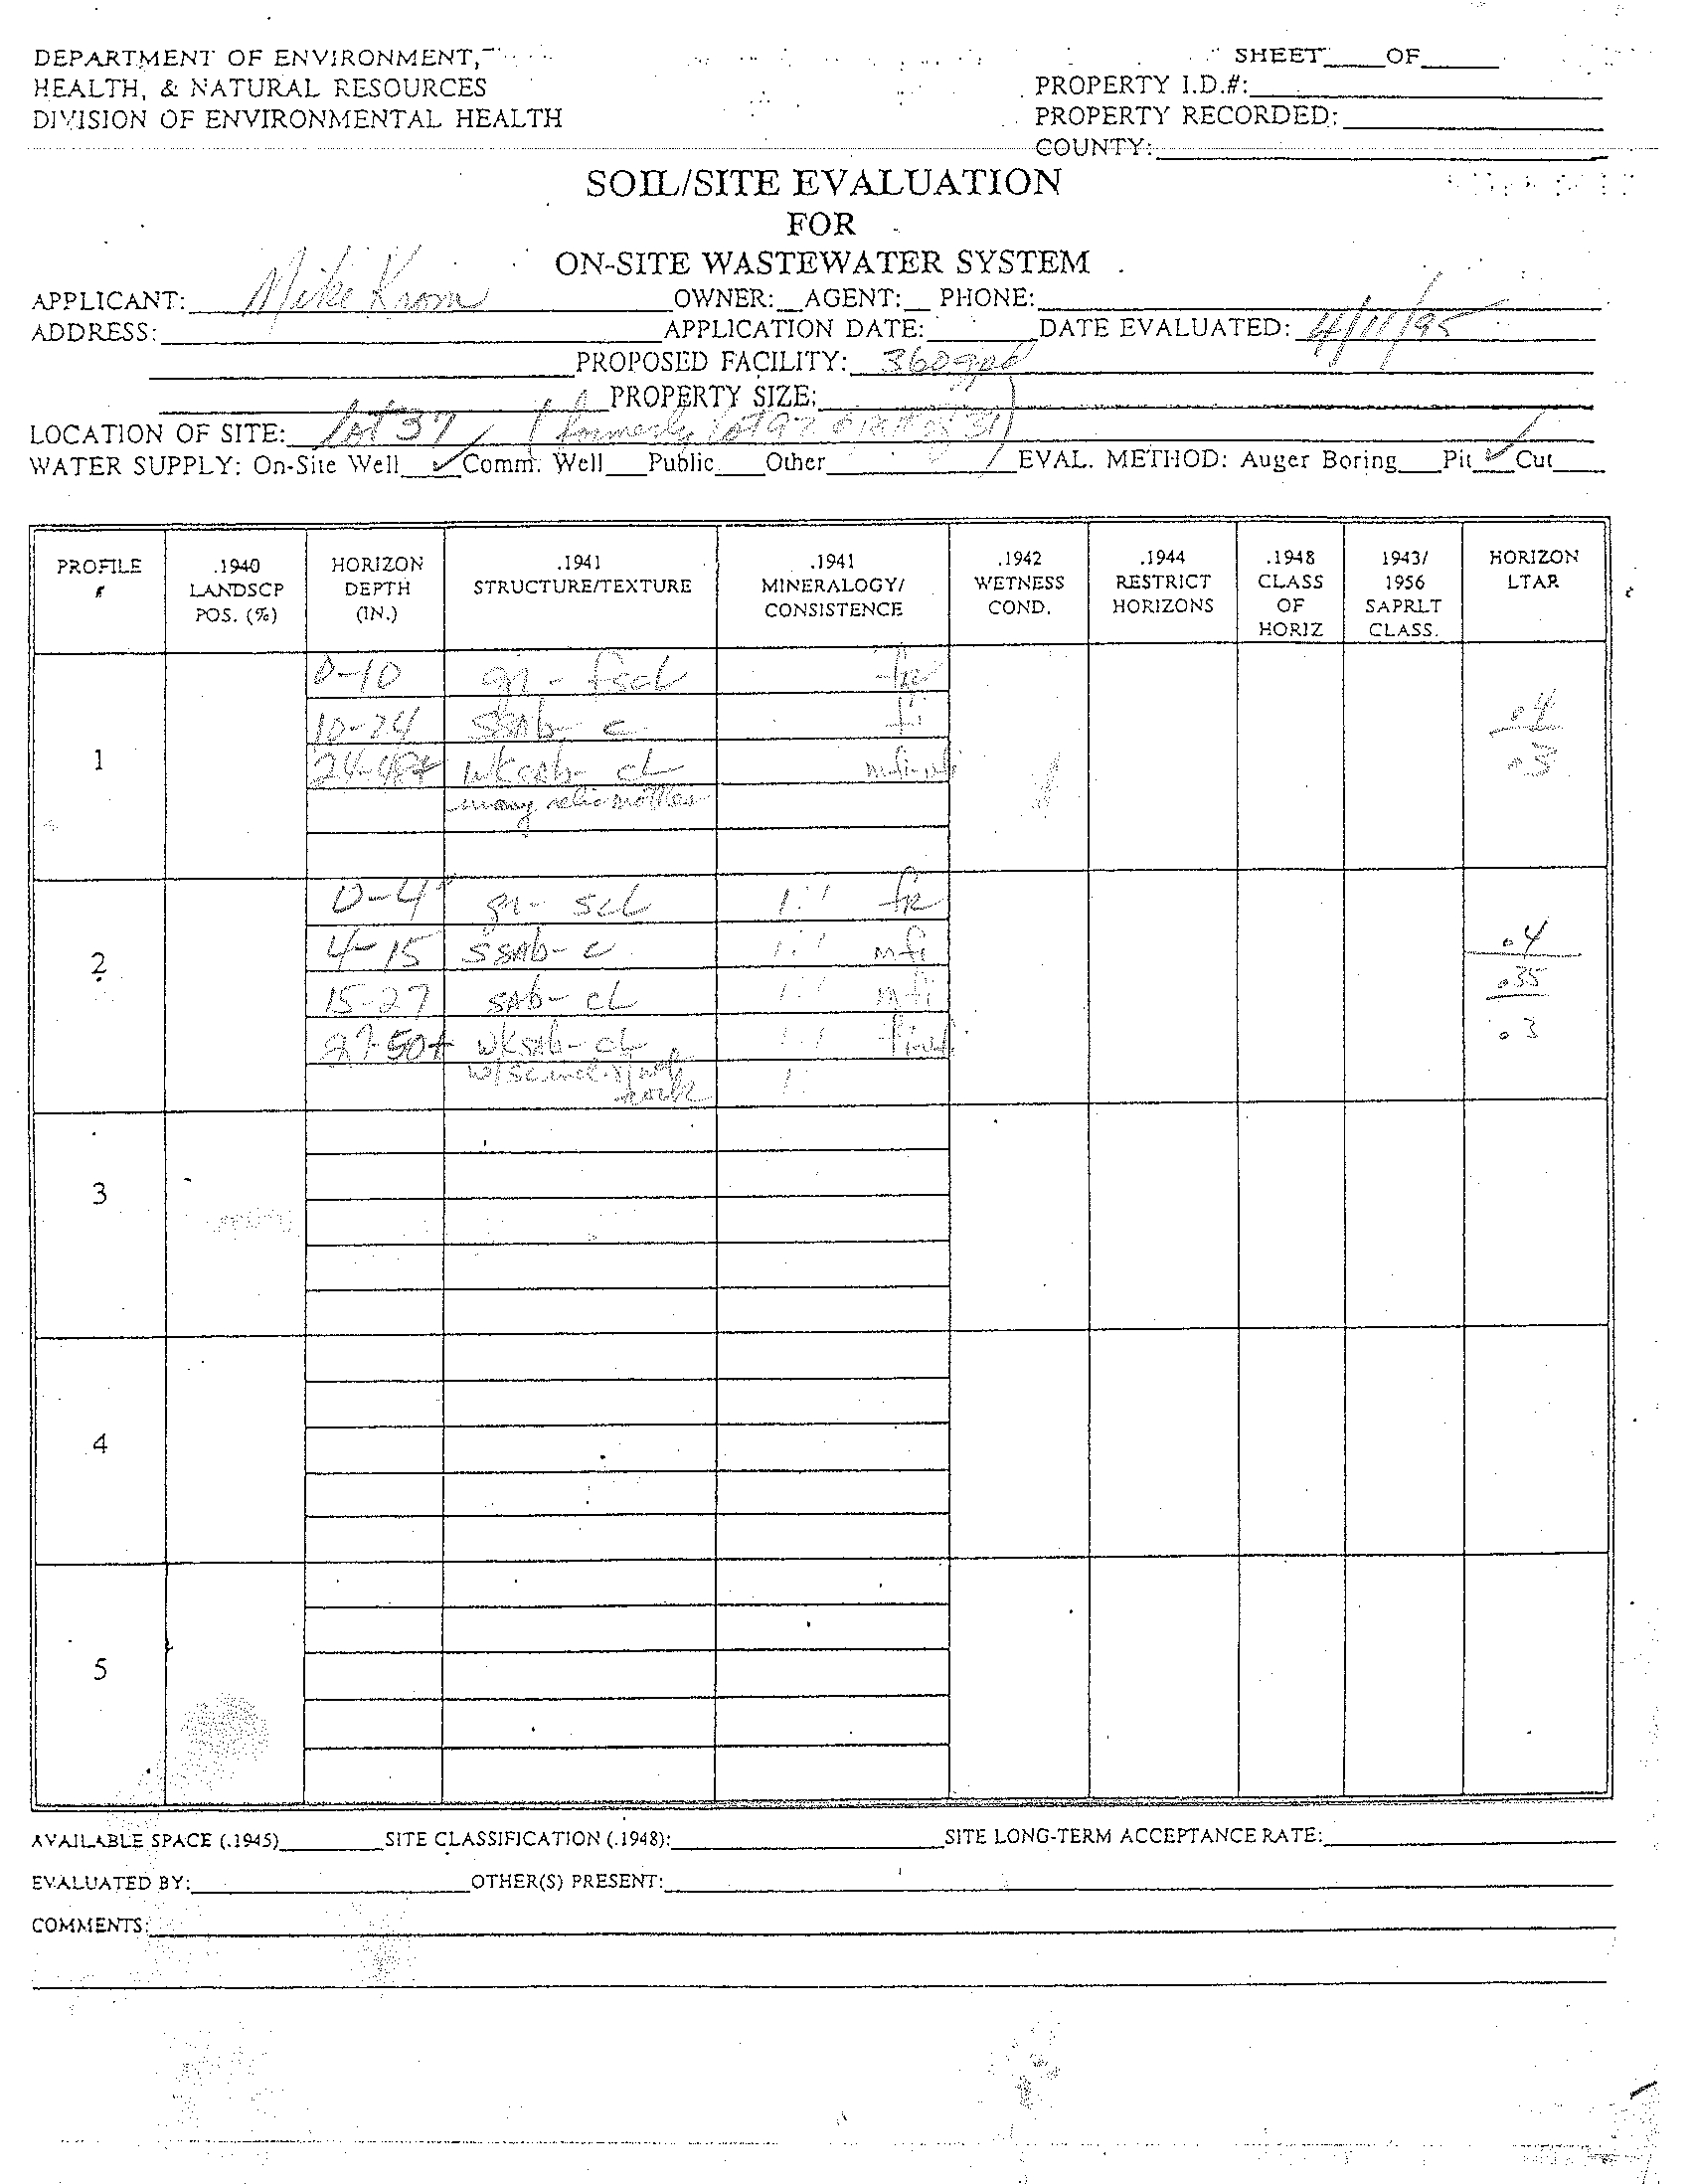 DEPARTMENT OF ENVIRONMENT,
HEALTH, & NATURAL RESOURCES
DIVISION OF ENVIRONMENTAL HEALTH
SHEET____OF____
PROPERTY I.D.#:
PROPERTY RECORDED:
COUNTY:
SOIL/SITE EVALUATION
FOR
ON-SITE WASTEWATER SYSTEM
APPLICANT: Mike Krom OWNER:__AGENT:__ PHONE:
ADDRESS: APPLICATION DATE: DATE EVALUATED: 4/11/95
PROPOSED FACILITY: 360 gpd
PROPERTY SIZE:
LOCATION OF SITE: Lot 37 (formerly lot 97
WATER SUPPLY: On-Site Well ✓ Comm. Well___Public___Other EVAL. METHOD: Auger Boring___Pit ✓ Cut___
PROFILE # .1940 LANDSCP POS. (%) HORIZON DEPTH (IN.) .1941 STRUCTURE/TEXTURE .1941 MINERALOGY/ CONSISTENCE .1942 WETNESS COND. .1944 RESTRICT HORIZONS .1948 CLASS OF HORIZ 1943/ 1956 SAPRLT CLASS. HORIZON LTAR
1
0-10 gr - fscl fr
10-24 SSAb- c fi .4
24-48+ wksab- cL .03
many relic mottles
2
0-4 gr- scl 1:1 fr
4-15 SSAb- c 1:1 mfi .4
15-27 sAb- cL 1:1 mfi .035
27-50+ wksab- cL 1:1 .03
rock
3
4
5
AVAILABLE SPACE (.1945) SITE CLASSIFICATION (.1948): SITE LONG-TERM ACCEPTANCE RATE:
EVALUATED BY: OTHER(S) PRESENT:
COMMENTS: